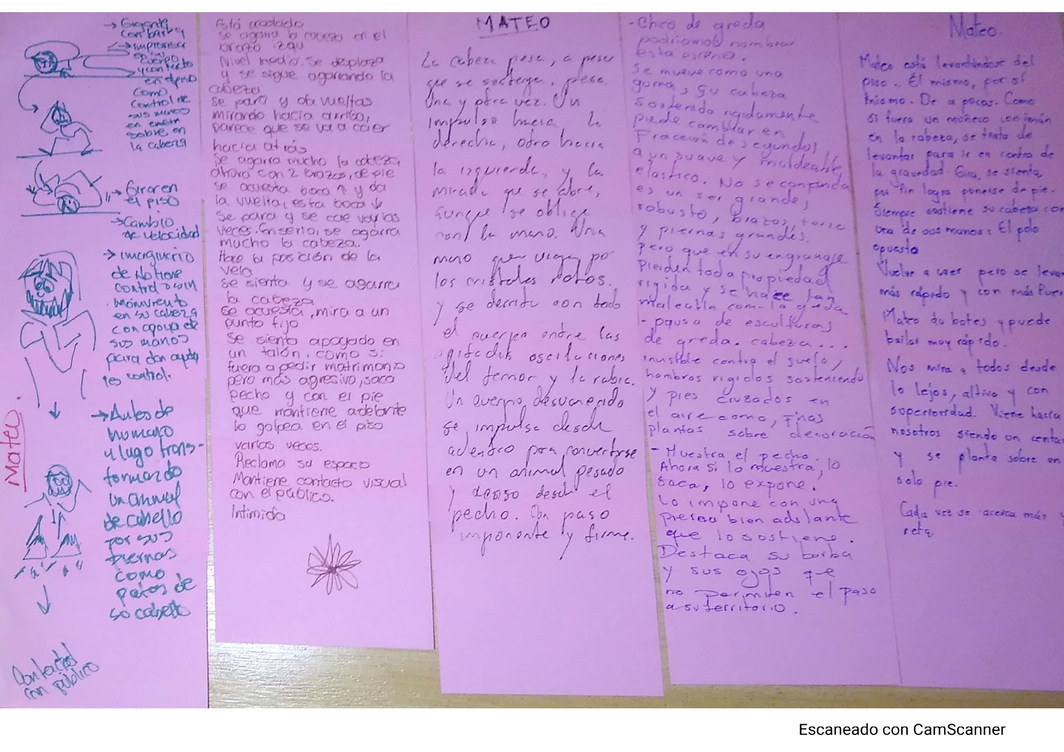 Mateo.
→ Gigante
con barba
→ improvisa
en su
cuerpo
y contacto
en el piso
como
control de
sus manos
en
sobre en
la cabeza
→ Girar en
el piso
→ Cambio
de velocidad
→ imaginario
de No tiene
control
movimiento
en su cabeza
con apoyo de
sus manos
para dar
control.
→ Antes de
humano
y lugo trans-
formando
un animal
de cabello
por sus
piernas
como
patas de
so cabello
Contactos
con público
Está acostado
se agarra la cabeza en el
brazo izqu
Nivel medio. Se desplaza
y se sigue agarrando la
cabeza
se para y da vueltas
mirando hacia arriba,
parece que se va a caer
hacia atrás
se agarra mucho la cabeza,
ahora con 2 brazos, de pie
se acuesta boca ↑ y da
la vuelta, esta boca ↓
Se para y se cae varias
veces. En serio, se agarra
mucho la cabeza.
Hace la posición de la
vela
se sienta y se agarra
la cabeza
se acuesta, mira a un
punto fijo
Se sienta apoyado en
un talón, como si
fuera a pedir matrimonio
pero más agresivo, saca
pecho y con el pie
que mantiene adelante
lo golpea en el piso
varias veces.
Reclama su espacio
Mantiene contacto visual
con el público.
Intimida
MATEO
La cabeza pesa, a pesar
que se sostenga, pesa.
Una y otra vez. Un
impulso hacia la
derecha, otro hacia
la izquierda, y la
mirada que se abre,
aunque se oblique
con la mano. Una
mano que viaja por
los cristales rotos.
Y se derrite con todo
el cuerpo entre las
agitadas oscilaciones
del temor y la rabia.
Un cuerpo desvanecido
se impulsa desde
adentro para convertirse
en un animal pesado
y desde el
pecho. Con paso
imponente y firme.
- Chico de greda
podríamos nombrar
esta escena.
Se mueve como una
goma, su cabeza
sostenida rigidamente
puede cambiar en
fracción de segundos
a un suave y moldeable
elastico. No se confunda
es un ser grande,
robusto, brazos, torso
y piernas grandes.
pero que en su engranaje
pierden toda propiedad
rigida y se hace tan
maleable como la greda
- pausa de esculturas
de greda. cabeza...
invisible contra el suelo,
hombros rigidos sosteniendo
y pies cruzados en
el aire como, finas
plantas sobre decoración
- Muestra el pecho.
Ahora Si lo muestra, lo
saca, lo expone.
Lo impone con una
pierna bien adelante
que lo sostiene.
Destaca su barba
y sus ojos que
no permiten el paso
a su territorio.
Mateo.
Mateo está levantándose del
piso. El mismo, por sí
mismo. De a pocos. Como
si fuera un muñeco con imán
en la cabeza, se trata de
levantar para ir en contra de
la gravedad. Gira, se sienta,
por fin logra ponerse de pie.
Siempre sostiene su cabeza con
una de sus manos: El polo
opuesto
Vuelve a caer pero se levanta
más rápido y con más fuerza
Mateo da botes y puede
bailar muy rápido.
Nos mira a todos desde
lo lejos, altivo y con
superioridad. Viene hacia
nosotros siendo un
y se planta sobre un
solo pie.
Cada vez se acerca más y
reta.
Escaneado con CamScanner